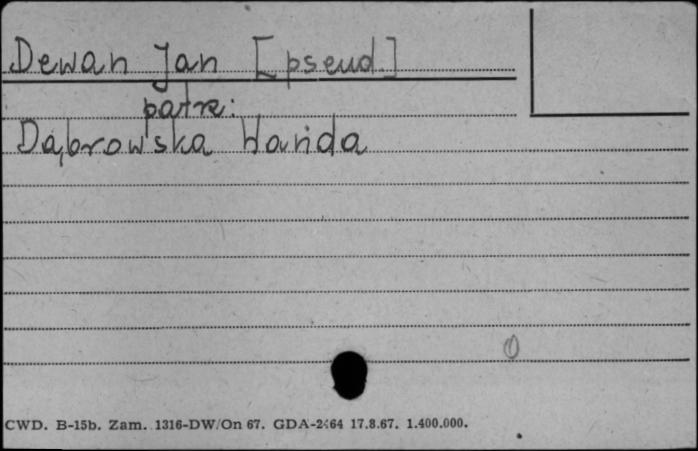 Dewan Jan [pseud.]
patrz:
Dąbrowska Wanda
CWD. B-15b. Zam. 1316-DW/On 67. GDA-2464 17.8.67. 1.400.000.